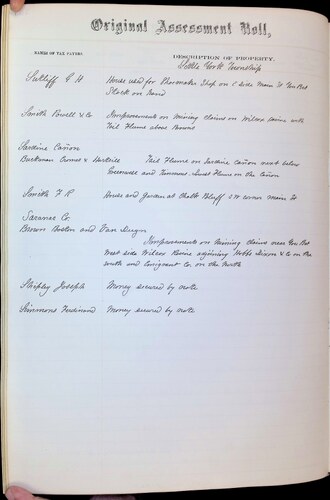 Original Assessment Roll,
NAMES OF TAX PAYERS.
DESCRIPTION OF PROPERTY.
Little York Township
Sutliff C H House used for Shoemaker Shop on E side Main St You Bet
Stock on hand
Smith Powell & Co Improvements on Mining claims on Wilcox ravine with
Tail Flume above
Sardine Cañon
Buckman Tail Flume in Sardine Cañon next below
Flume on the Cañon
Smith F R House and Garden at Chalk Bluff S W corner Main St
Saranac Co
Brown Boston and Van Duzen
Improvements on Mining claims over You Bet
West side Wilcox Ravine adjoining Hobbs Dixon & Co on the
South and Emigrant Co. on the North
Shipley Joseph Money secured by note
Simmons Ferdinand Money secured by note